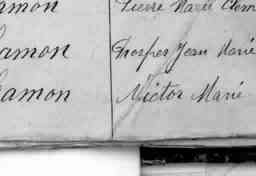 amon Pierre Marie Clem
amon Prosper Jean Marie
amon Victor Marie